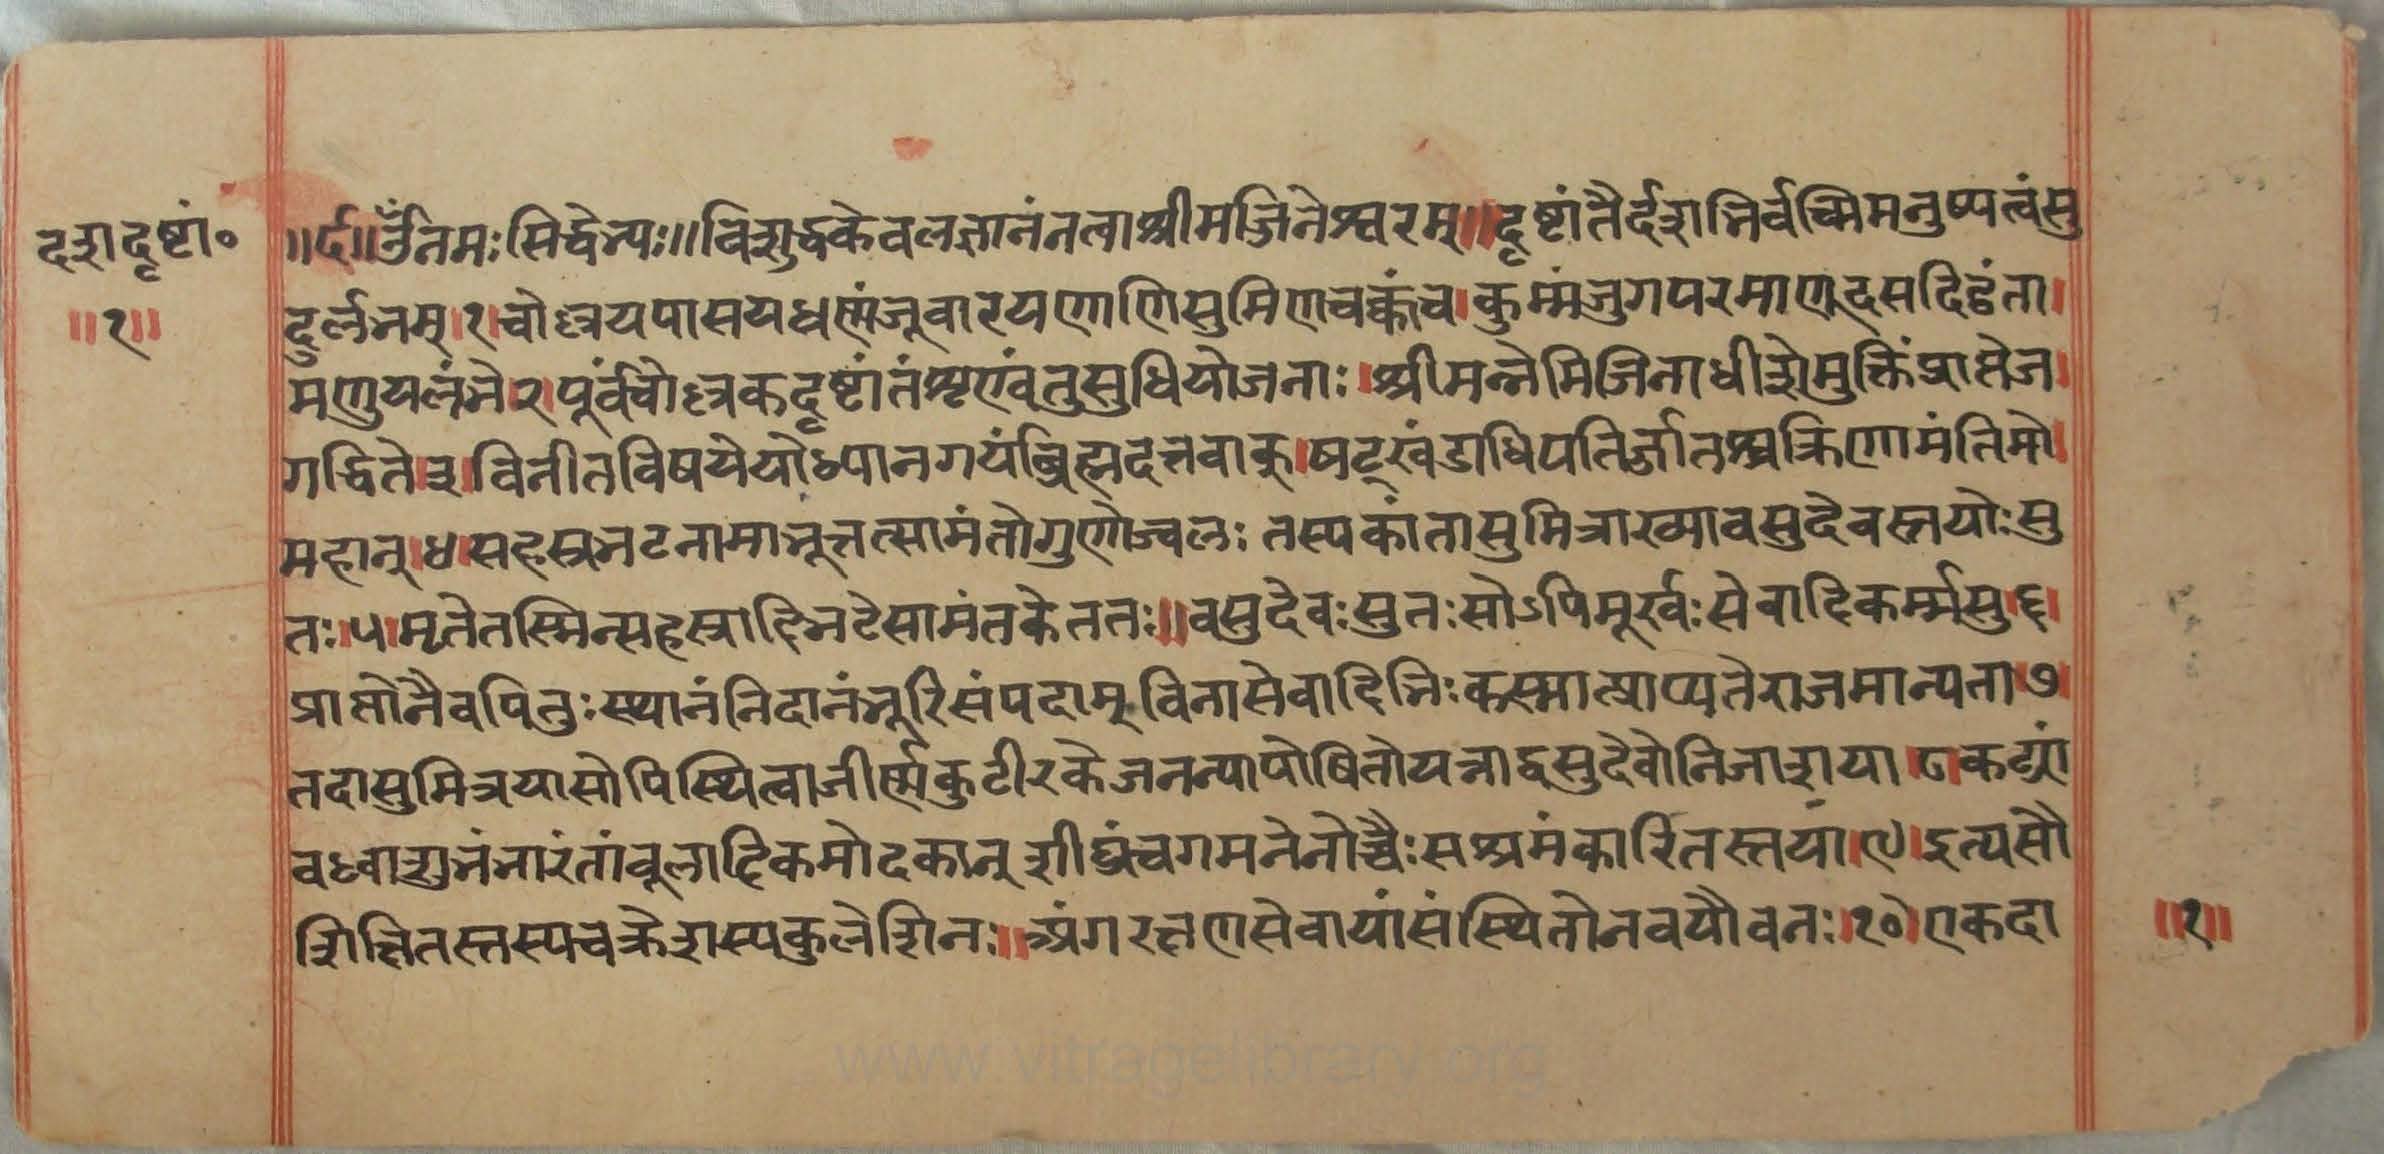 दशदृष्टां०
॥१॥
॥र्द॥ॐनमःसिद्धेभ्यः॥विशुद्धकेवलज्ञानंनत्वाश्रीमज्जिनेश्वरम्॥दृष्टांतैर्दशभिर्वच्मिमनुष्यत्वंसु
दुर्लभम्।१।चोल्लयपासयधण्णंजूवारयणाणिसुमिणचक्कंच।कुम्मंजुगपरमाणूदसदिट्ठंता।
मणुयलंभे२।पूर्वंचोल्लकदृष्टांतंशृण्वंतुसुधियोजनाः।श्रीमन्नेमिजिनाधीशेमुक्तिंप्राप्तेज।
गद्धिते३।विनीतविषयेयोध्यानगर्यांब्रह्मदत्तवाक्।षट्खंडाधिपतिर्जातश्चक्रिणामंतिमो।
महान्।४।सहस्रभटनामाभूत्तत्सामंतोगुणोज्वलः तस्यकांतासुमित्राख्यावसुदेवस्तयोःसु
तः।५।मृतेतस्मिन्सहस्रादिभटेसामंतकेततः॥वसुदेवःसुतःसोऽपिमूर्खःसेवादिकर्म्मसु।६।
प्राप्तोनैवपितुःस्थानंनिदानंभूरिसंपदाम् विनासेवादिभिःकस्मात्प्राप्यतेराजमान्यता।७।
तदासुमित्रयासोपिस्थित्वाजीर्ण्णकुटीरकेजनन्यापोषितोयत्नाद्वसुदेवोनिजाशया।८।कट्यां
वध्वाशुभंभारंतांबूलादिकमोदकान् शीघ्रंचगमनेनोच्चैःसश्रमंकारितस्तया।९।इत्यसौ
शिक्षितस्तस्यचक्रेशस्यकुलेशिनः॥अंगरक्षणसेवायांसंस्थितोनवयौवनः।१०।एकदा
॥१॥
www.vitragelibrary.org